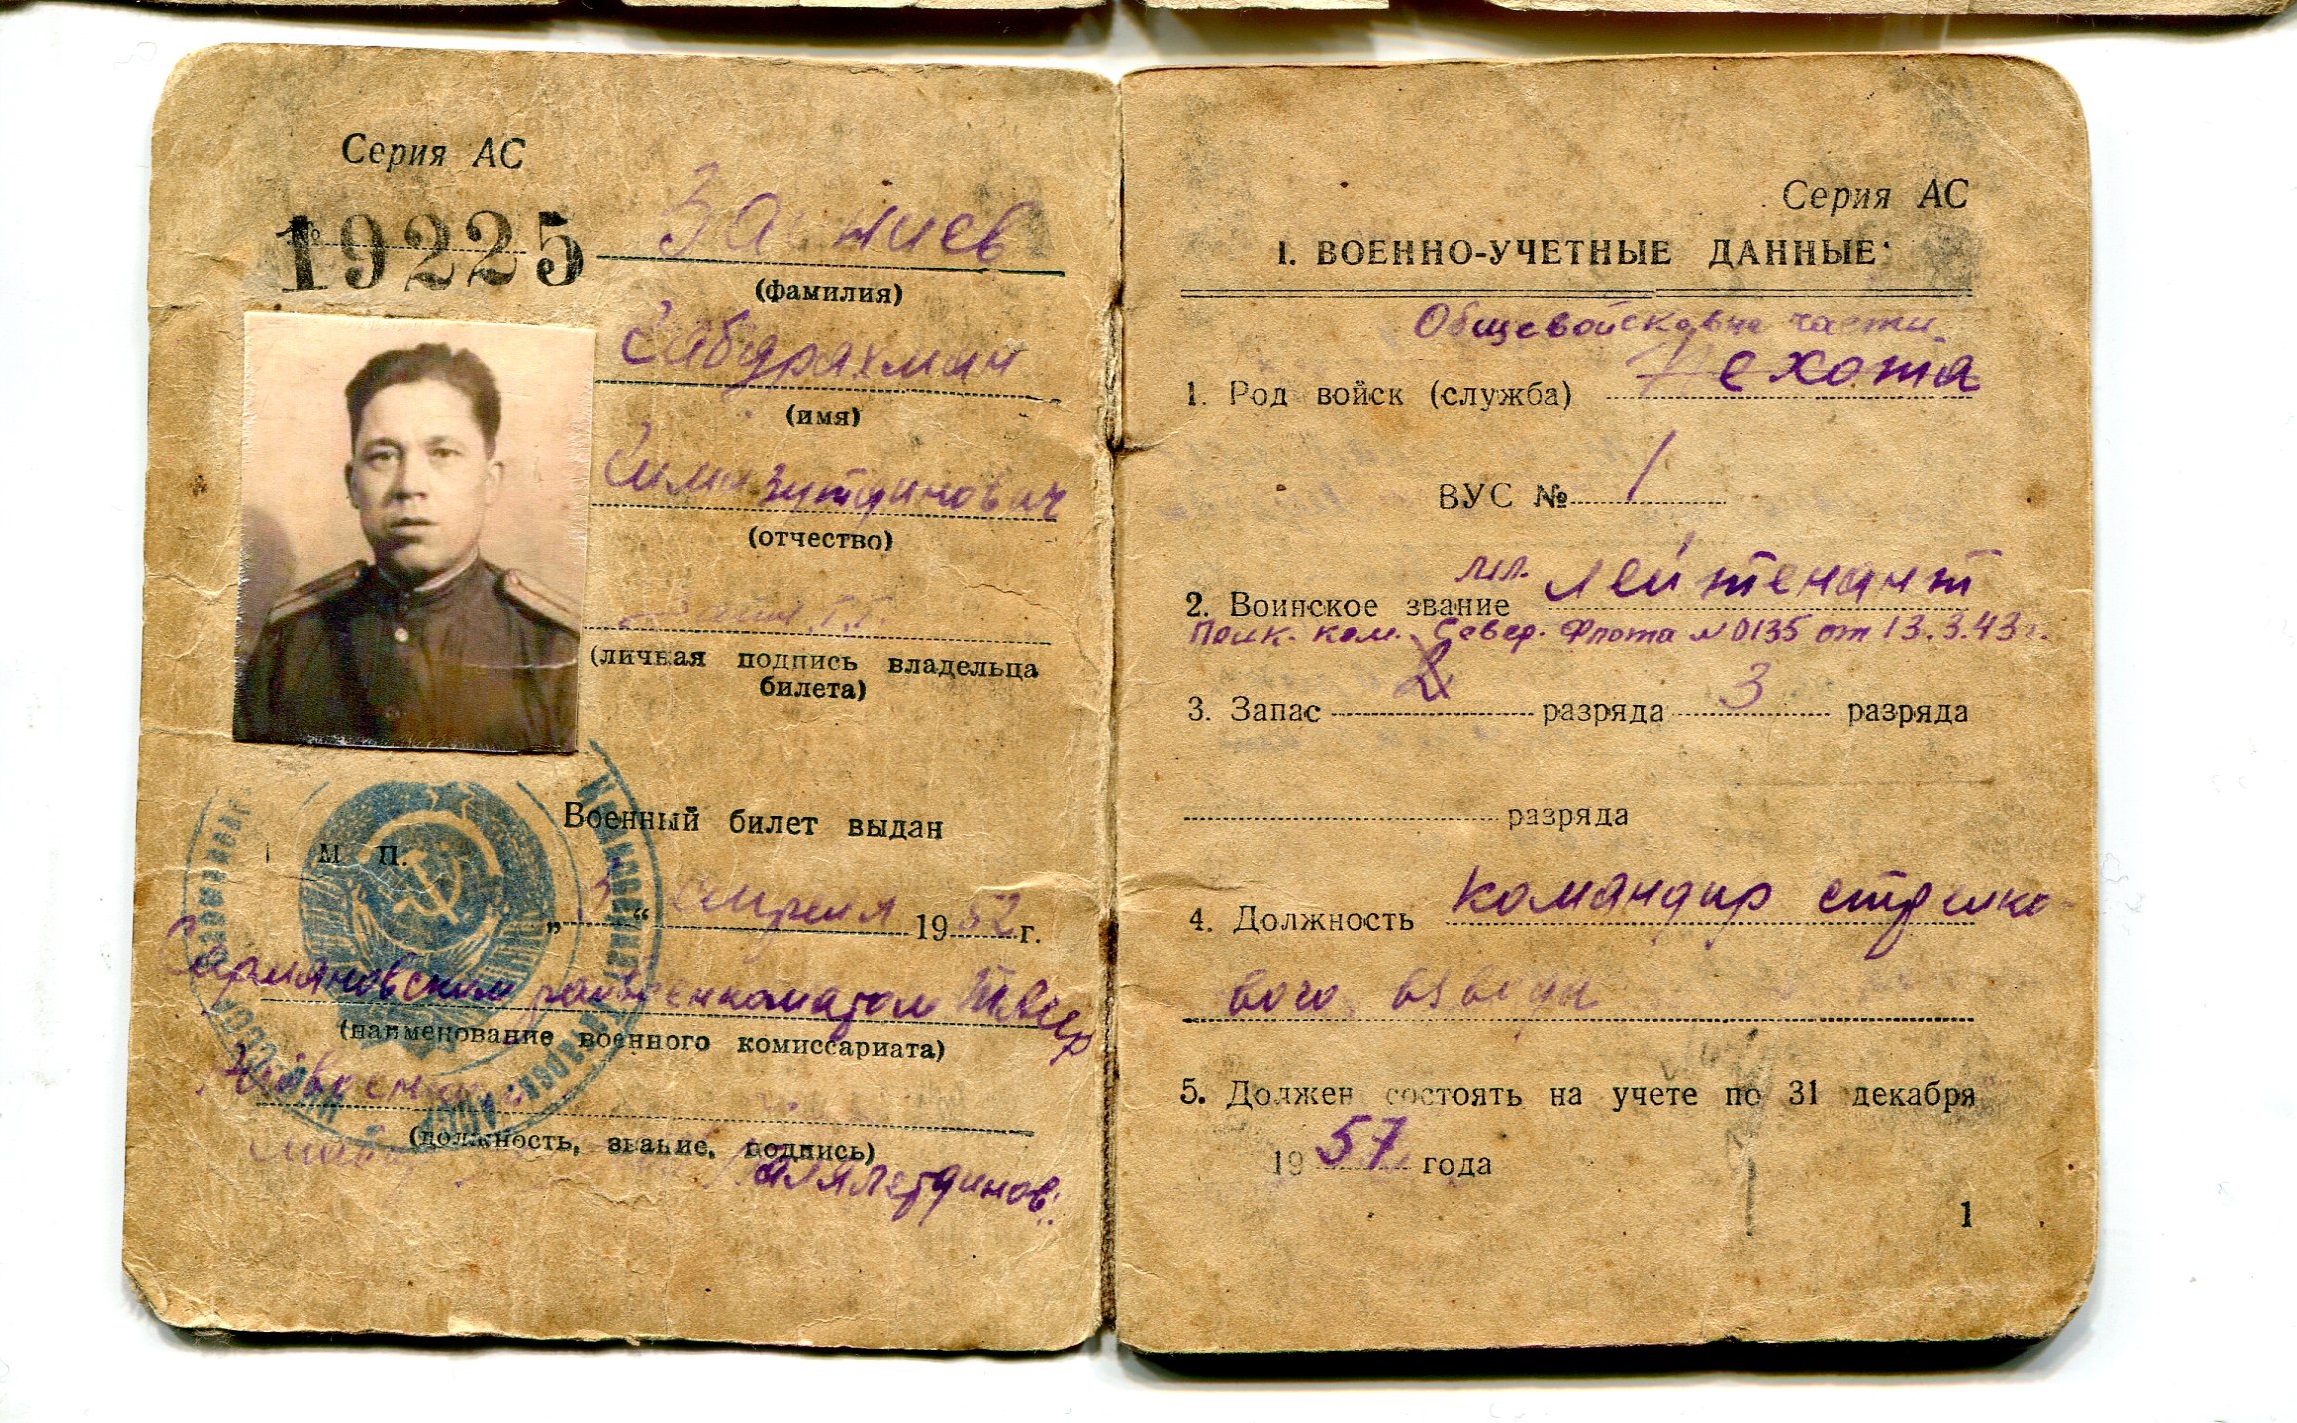 Серия АС
№ 19225
Заниев
(фамилия)
Габдрахман
(имя)
(отчество)
(личная подпись владельца
билета)
Военный билет выдан
М П.
„ “ апреля 1952 г.
Сармановским райвоенкоматом
(наименование военного комиссариата)
Райвоенком
(должность, звание, подпись)
Серия АС
1. ВОЕННО-УЧЕТНЫЕ ДАННЫЕ
Общевойсковые части
1. Род войск (служба) Пехота
ВУС № 1
2. Воинское звание мл. лейтенант
Север. Флота № 0135 от 13.3.43 г.
3. Запас 2 разряда 3 разряда
разряда
4. Должность командир стрелко-
вого взвода
5. Должен состоять на учете по 31 декабря
1957 года
1